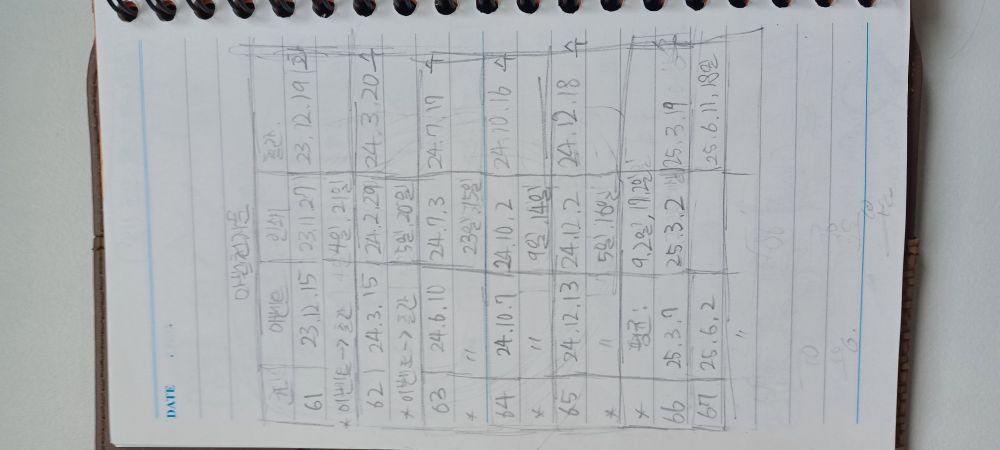 DATE
마법천자문
권 이벤트 인쇄 출간
61 23.12.15 23.11.27 23.12.19 화
* 이벤트 -> 출간 4일 21일
62 24.3.15 24.2.29 24.3.20 수
* 이벤트 -> 출간 5일 20일
63 24.6.10 24.7.3 24.7.17 수
* " 23일 15일
64 24.10.7 24.10.2 24.10.16 수
* " 9일 14일
65 24.12.13 24.12.2 24.12.18 수
* " 5일 16일
* 평균: 9.2일, 17.2일
66 25.3.7 25.3.2 25.3.19
67 25.6.2 25.6.11, 18일
"